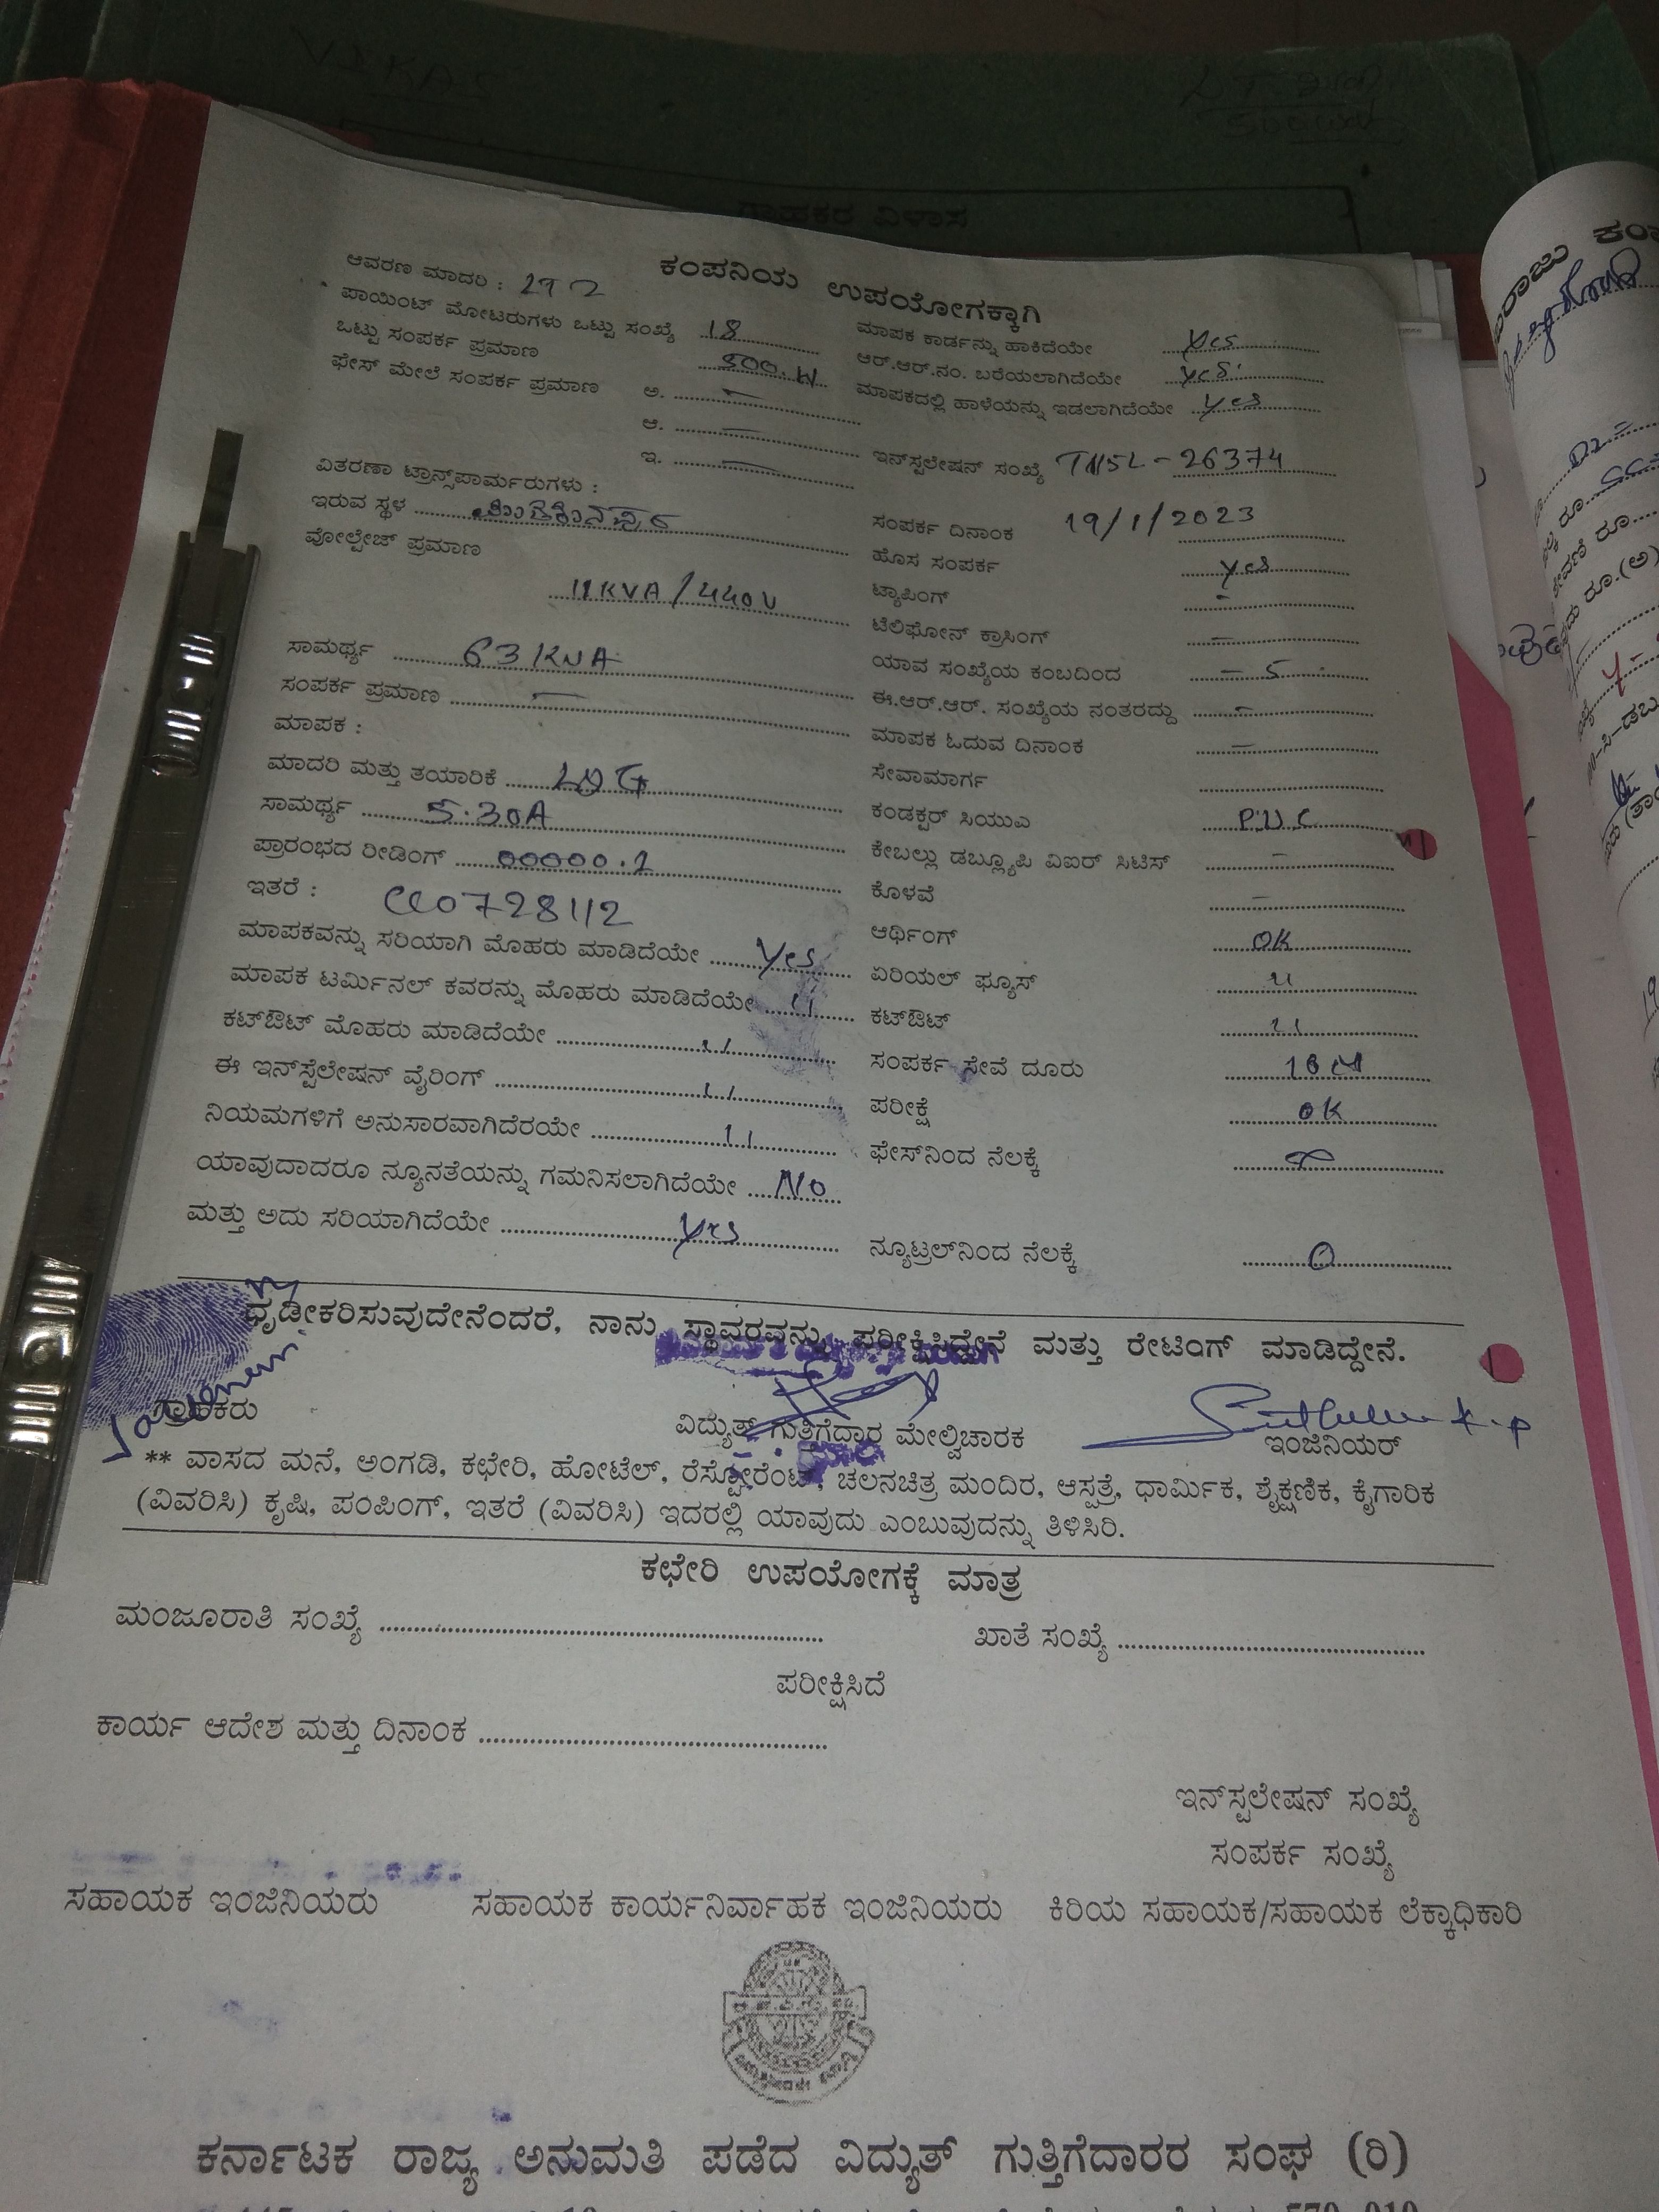 VIKAS
ಗ್ರಾಹಕರ ವಿಳಾಸ
ಕಂಪನಿಯ ಉಪಯೋಗಕ್ಕಾಗಿ
ಆವರಣ ಮಾದರಿ :
ಪಾಯಿಂಟ್ ಮೋಟರುಗಳು ಒಟ್ಟು ಸಂಖ್ಯೆ 18
ಒಟ್ಟು ಸಂಪರ್ಕ ಪ್ರಮಾಣ 500.W
ಫೇಸ್ ಮೇಲೆ ಸಂಪರ್ಕ ಪ್ರಮಾಣ ಅ. –
ಆ. –
ಇ. –
ವಿತರಣಾ ಟ್ರಾನ್ಸ್‌ಪಾರ್ಮರುಗಳು :
ಇರುವ ಸ್ಥಳ
ವೋಲ್ಟೇಜ್ ಪ್ರಮಾಣ
11KVA/440V
ಸಾಮರ್ಥ್ಯ 63KVA
ಸಂಪರ್ಕ ಪ್ರಮಾಣ –
ಮಾಪಕ :
ಮಾದರಿ ಮತ್ತು ತಯಾರಿಕೆ L&G
ಸಾಮರ್ಥ್ಯ 5.30A
ಪ್ರಾರಂಭದ ರೀಡಿಂಗ್ 00000.1
ಇತರೆ : 0728112
ಮಾಪಕವನ್ನು ಸರಿಯಾಗಿ ಮೊಹರು ಮಾಡಿದೆಯೇ Yes
ಮಾಪಕ ಟರ್ಮಿನಲ್ ಕವರನ್ನು ಮೊಹರು ಮಾಡಿದೆಯೇ 11
ಕಟ್‌ಔಟ್ ಮೊಹರು ಮಾಡಿದೆಯೇ 11
ಈ ಇನ್‌ಸ್ಟೆಲೇಷನ್ ವೈರಿಂಗ್ 11
ನಿಯಮಗಳಿಗೆ ಅನುಸಾರವಾಗಿದೆರಯೇ 11
ಯಾವುದಾದರೂ ನ್ಯೂನತೆಯನ್ನು ಗಮನಿಸಲಾಗಿದೆಯೇ No
ಮತ್ತು ಅದು ಸರಿಯಾಗಿದೆಯೇ Yes
ಮಾಪಕ ಕಾರ್ಡನ್ನು ಹಾಕಿದೆಯೇ Yes
ಆರ್.ಆರ್.ನಂ. ಬರೆಯಲಾಗಿದೆಯೇ Yes
ಮಾಪಕದಲ್ಲಿ ಹಾಳೆಯನ್ನು ಇಡಲಾಗಿದೆಯೇ Yes
ಇನ್‌ಸ್ಟಲೇಷನ್ ಸಂಖ್ಯೆ TN5L-26374
ಸಂಪರ್ಕ ದಿನಾಂಕ 19/1/2023
ಹೊಸ ಸಂಪರ್ಕ Yes
ಟ್ಯಾಪಿಂಗ್ –
ಟೆಲಿಫೋನ್ ಕ್ರಾಸಿಂಗ್ –
ಯಾವ ಸಂಖ್ಯೆಯ ಕಂಬದಿಂದ – 5
ಈ.ಆರ್.ಆರ್. ಸಂಖ್ಯೆಯ ನಂತರದ್ದು –
ಮಾಪಕ ಓದುವ ದಿನಾಂಕ –
ಸೇವಾಮಾರ್ಗ
ಕಂಡಕ್ಟರ್ ಸಿಯುಎ P.V.C
ಕೇಬಲ್ಲು ಡಬ್ಲ್ಯೂಪಿ ವಿಐರ್ ಸಿಟಿಸ್ –
ಕೊಳವೆ –
ಆರ್ಥಿಂಗ್ OK
ಏರಿಯಲ್ ಫ್ಯೂಸ್ 11
ಕಟ್‌ಔಟ್ 11
ಸಂಪರ್ಕ ಸೇವೆ ದೂರು 10M
ಪರೀಕ್ಷೆ OK
ಫೇಸ್‌ನಿಂದ ನೆಲಕ್ಕೆ ∞
ನ್ಯೂಟ್ರಲ್‌ನಿಂದ ನೆಲಕ್ಕೆ 0
ಧೃಡೀಕರಿಸುವುದೇನೆಂದರೆ, ನಾನು ಸ್ಥಾವರವನ್ನು ಪರೀಕ್ಷಿಸಿದ್ದೇನೆ ಮತ್ತು ರೇಟಿಂಗ್ ಮಾಡಿದ್ದೇನೆ.
ಗ್ರಾಹಕರು ವಿದ್ಯುತ್ ಗುತ್ತಿಗೆದಾರ ಮೇಲ್ವಿಚಾರಕ ಇಂಜಿನಿಯರ್
** ವಾಸದ ಮನೆ, ಅಂಗಡಿ, ಕಛೇರಿ, ಹೋಟೆಲ್, ರೆಸ್ಟೋರೆಂಟ್, ಚಲನಚಿತ್ರ ಮಂದಿರ, ಆಸ್ಪತ್ರೆ, ಧಾರ್ಮಿಕ, ಶೈಕ್ಷಣಿಕ, ಕೈಗಾರಿಕ
(ವಿವರಿಸಿ) ಕೃಷಿ, ಪಂಪಿಂಗ್, ಇತರೆ (ವಿವರಿಸಿ) ಇದರಲ್ಲಿ ಯಾವುದು ಎಂಬುವುದನ್ನು ತಿಳಿಸಿರಿ.
ಕಛೇರಿ ಉಪಯೋಗಕ್ಕೆ ಮಾತ್ರ
ಮಂಜೂರಾತಿ ಸಂಖ್ಯೆ ಖಾತೆ ಸಂಖ್ಯೆ
ಪರೀಕ್ಷಿಸಿದೆ
ಕಾರ್ಯ ಆದೇಶ ಮತ್ತು ದಿನಾಂಕ
ಇನ್‌ಸ್ಟಲೇಷನ್ ಸಂಖ್ಯೆ
ಸಂಪರ್ಕ ಸಂಖ್ಯೆ
ಸಹಾಯಕ ಇಂಜಿನಿಯರು ಸಹಾಯಕ ಕಾರ್ಯನಿರ್ವಾಹಕ ಇಂಜಿನಿಯರು ಕಿರಿಯ ಸಹಾಯಕ/ಸಹಾಯಕ ಲೆಕ್ಕಾಧಿಕಾರಿ
ಕರ್ನಾಟಕ ರಾಜ್ಯ ಅನುಮತಿ ಪಡೆದ ವಿದ್ಯುತ್ ಗುತ್ತಿಗೆದಾರರ ಸಂಘ (ರಿ)